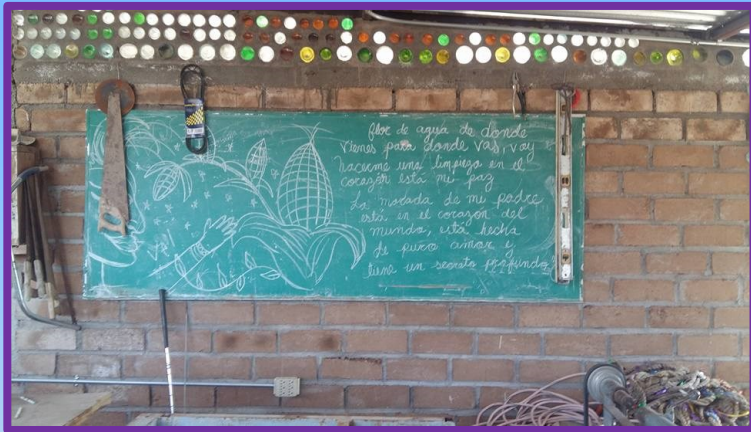 flor de agua de donde
vienes para donde vas, voy
hacerme una limpieza en el
corazón está mi paz
La morada de mi padre
está en el corazón del
mundo, está hecha
de puro amor y
tiene un secreto profundo